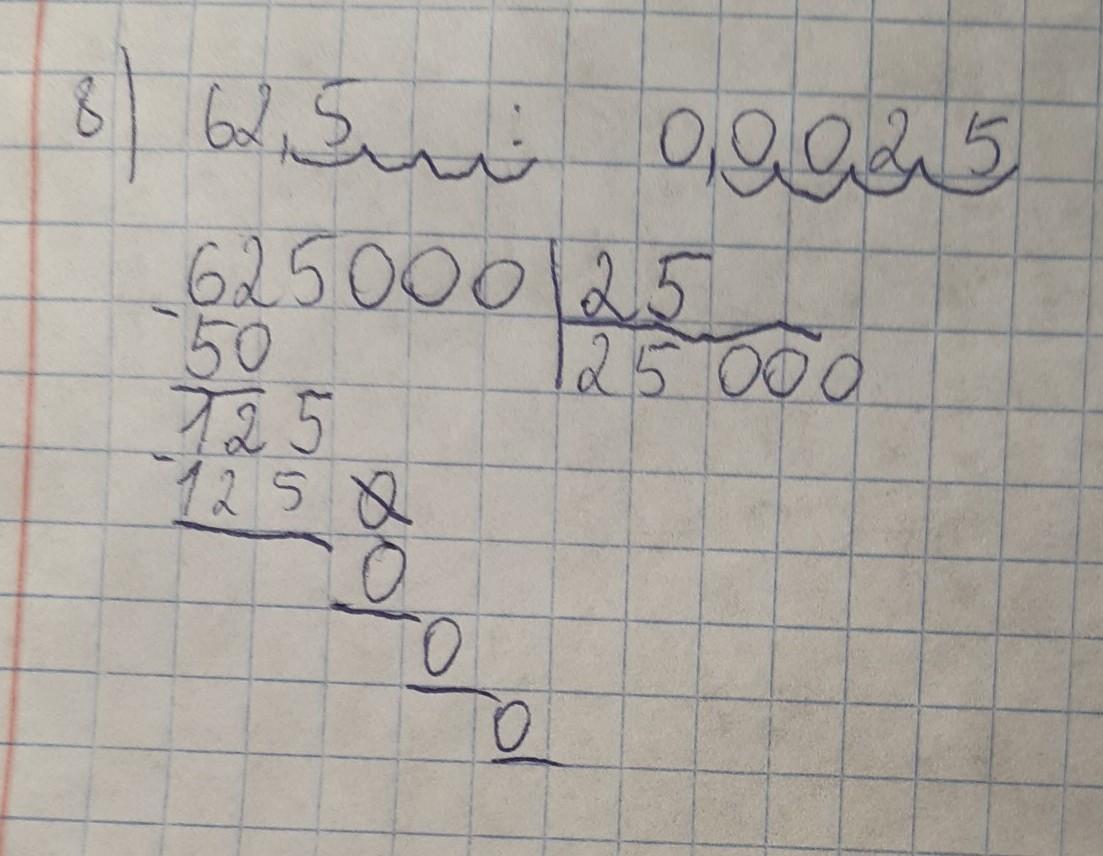 8) 62,5 : 0,0025
625000 | 25
- 50 | 25 000
125
- 125
0
0
0